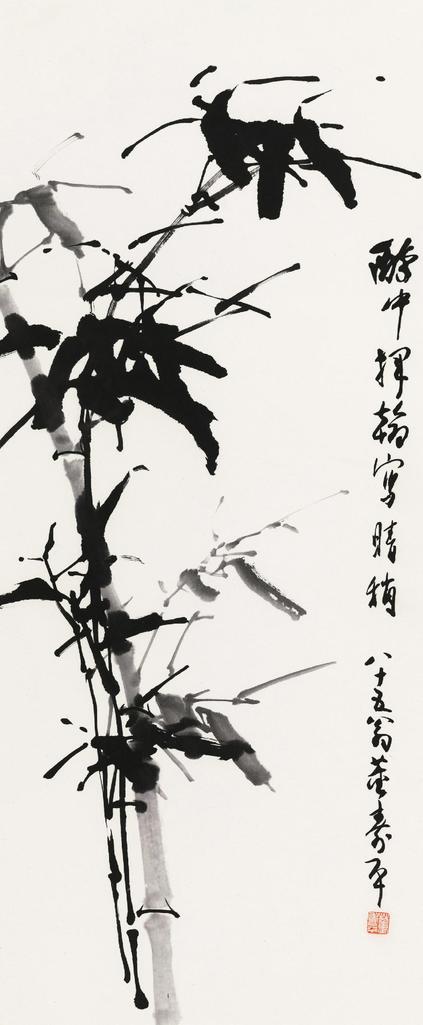 醉中揮翰寫晴梢 八十五翁董壽平